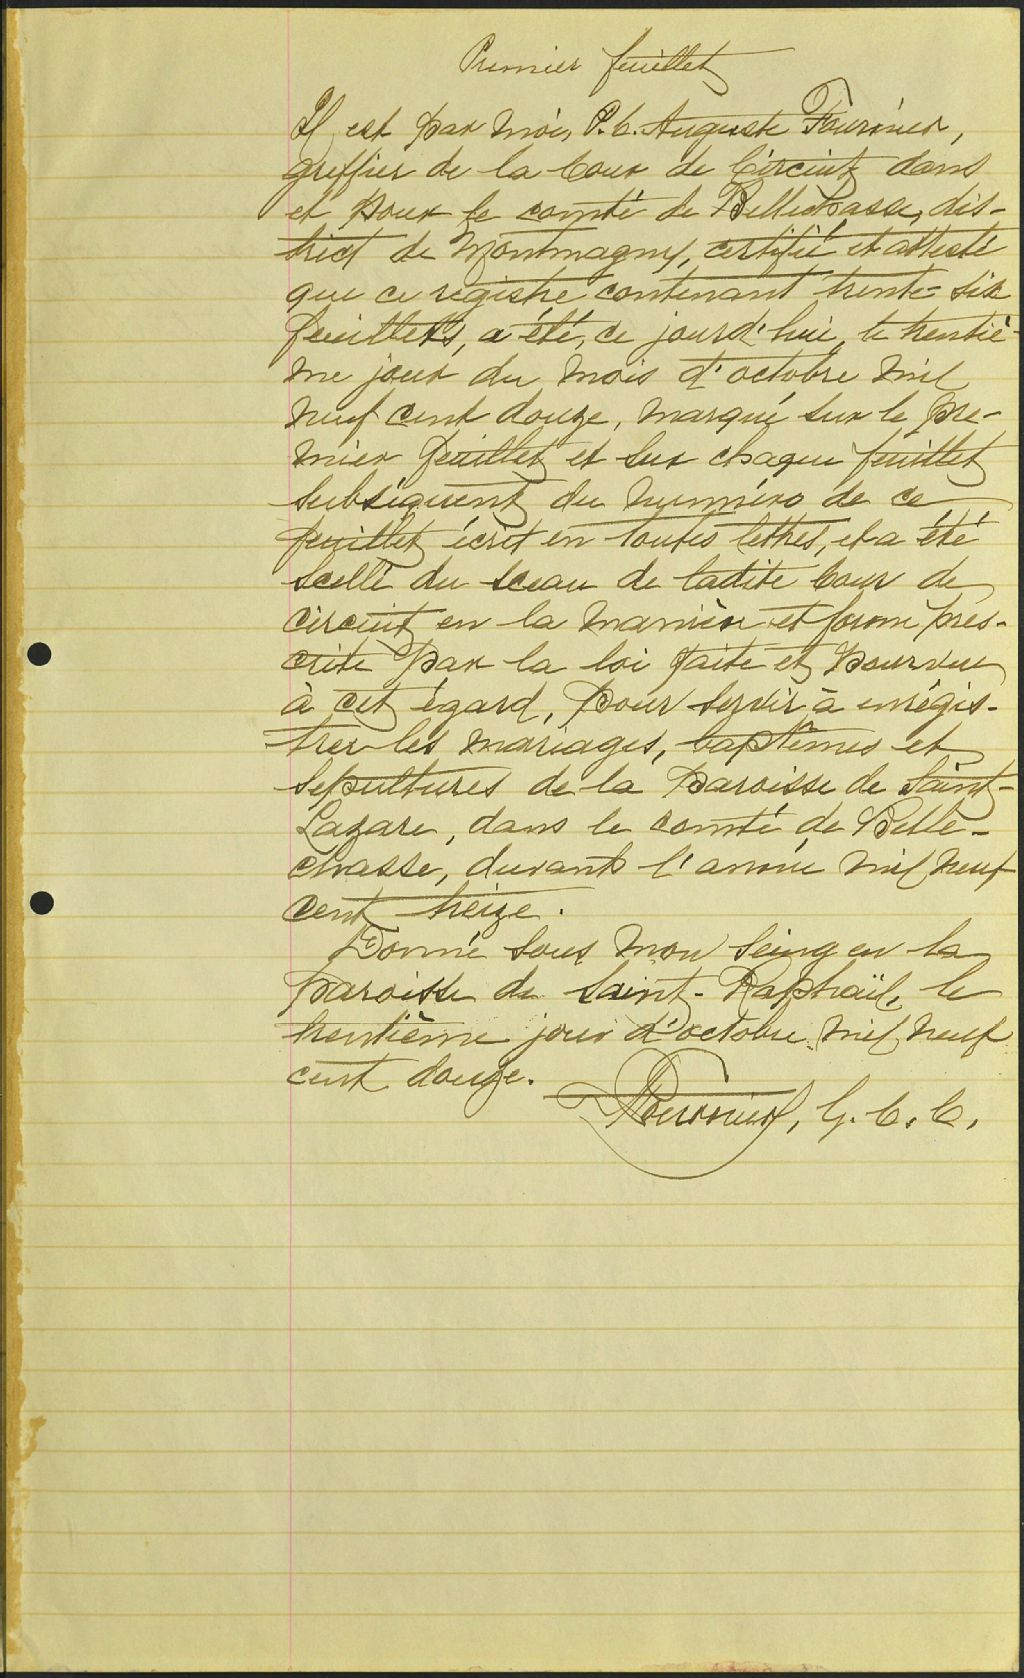 Premier feuillet
Il est par moi, P. C. Auguste Fournier,
greffier de la Cour de Circuit dans
et pour le comté de Bellechasse, dis-
trict de Montmagny, certifié et attesté
que ce registre contenant trente-six
feuillets, a été, ce jourd'hui, le trentiè-
me jour du mois d'octobre mil
neuf cent douze, marqué sur le pre-
mier feuillet et sur chaque feuillet
subséquent du numéro de ce
feuillet écrit en toutes lettres, et a été
scellé du sceau de ladite Cour de
circuit en la manière et forme pres-
crite par la loi faite et pourvue
à cet égard, pour servir à enrégis-
trer les mariages, baptêmes et
sépultures de la paroisse de Saint-
Lazare, dans le comté de Belle-
chasse, durant l'année mil neuf
cent treize.
Donné sous mon seing en la
paroisse de Saint-Raphaël, le
trentième jour d'octobre mil neuf
cent douze.
Fournier, G. C. C.